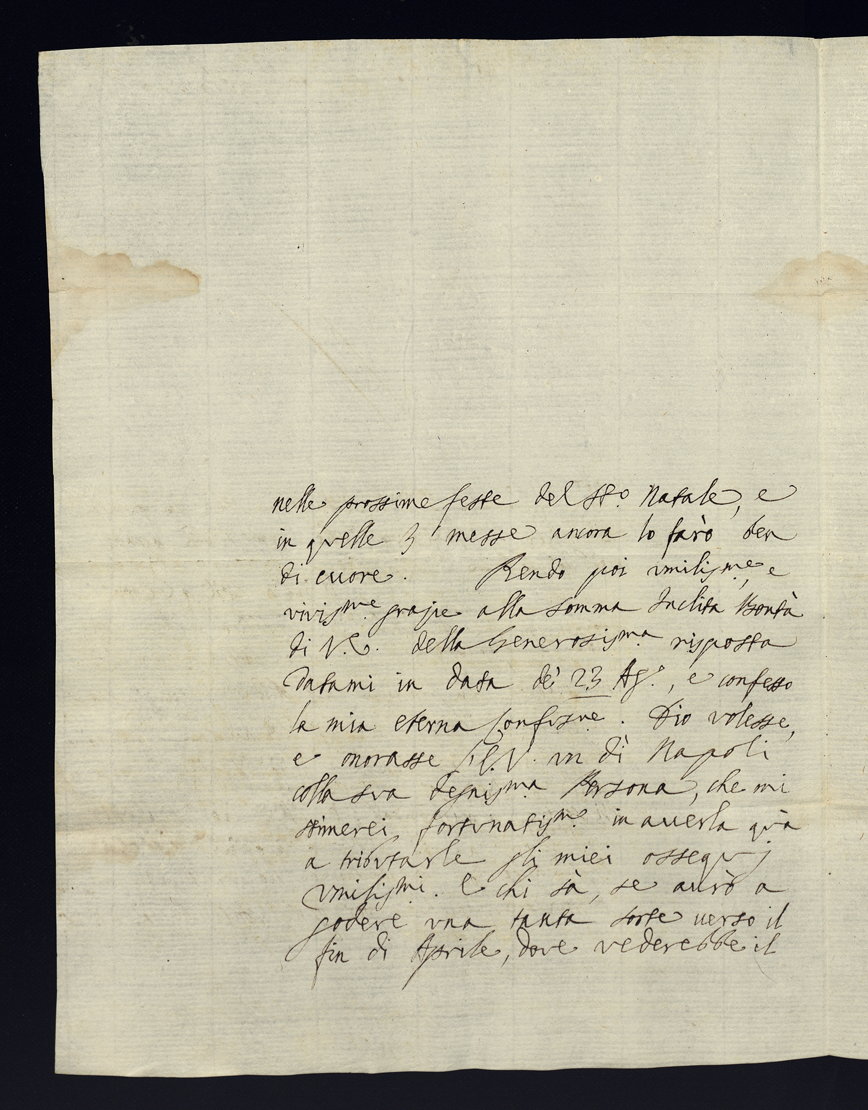 nelle prossime feste del Sto. Natale, e
in quelle 3 messe ancora lo farò ben
di cuore. Rendo poi umilisme, e
vivisme grazie alla somma Inclita Bontà
di V.E. della Generosisma risposta
datami in data de' 23 Ago., e confesso
la mia eterna Confusne. Dio volesse,
e onorasse l'E.V. un dì Napoli
colla sua degnisma Persona, che mi
stimerei fortunatismo in averla quà
a tributarle gli miei ossequj
umilismi. E chi sà, se avrò a
godere una tanta sorte verso il
fin di Aprile, dove vederebbe il